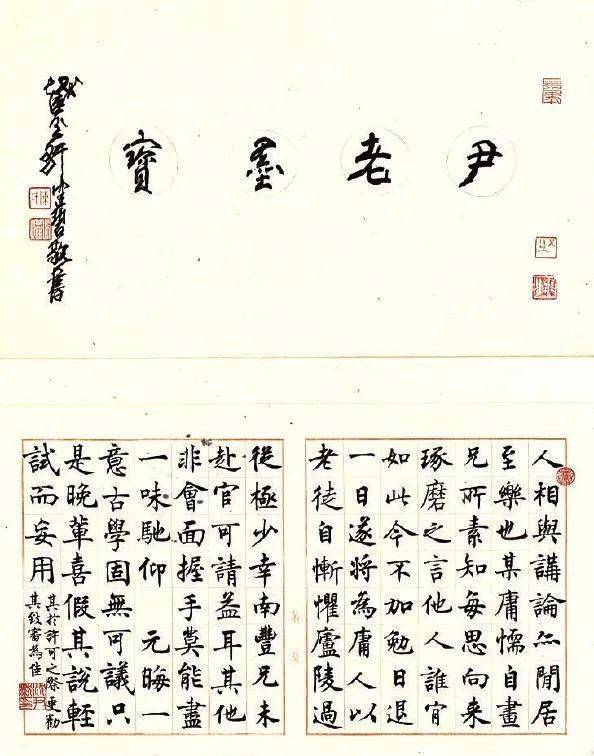 尹老墨寶
敬書
人相與講論亦閒居
至樂也某庸懦自畫
兄所素知每思向来
琢磨之言他人誰肎
如此今不加勉日退
一日遂將為庸人以
老徒自慚懼廬陵過
從極少幸南豐兄未
赴官可請益耳其他
非會面握手莫能盡
一味馳仰 元晦一
意古學固無可議只
是晚輩喜假其說輕
試而妄用
其於許可之際更勒
其致審為佳